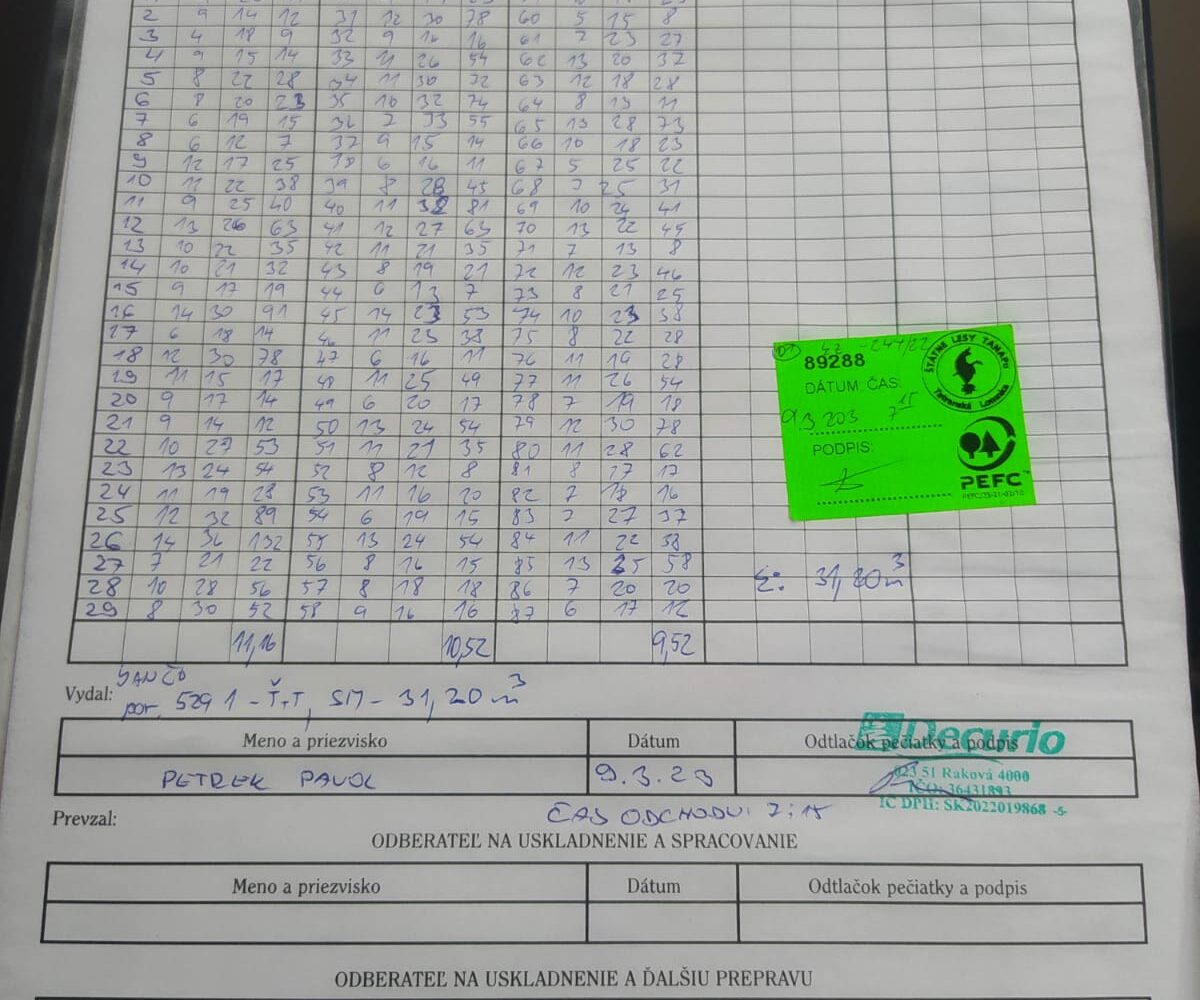 2 9 14 12 31 12 30 78 60 5 15 8
3 4 18 9 32 9 16 16 61 7 23 27
4 9 15 14 33 11 26 54 62 13 20 37
5 8 22 28 34 11 30 72 63 12 18 28
6 8 20 23 35 10 32 74 64 8 13 11
7 6 19 15 36 7 33 55 65 13 28 73
8 6 12 7 37 9 15 14 66 10 18 23
9 12 17 25 38 6 16 11 67 5 25 22
10 11 22 38 39 8 28 45 68 7 25 31
11 9 25 40 40 11 32 81 69 10 24 41
12 13 26 63 41 12 27 63 70 13 22 45
13 10 22 35 42 11 21 35 71 7 13 8
14 10 21 32 43 8 19 21 72 12 23 46
15 9 17 19 44 6 13 7 73 8 21 25
16 14 30 91 45 14 23 53 74 10 23 38
17 6 18 14 46 11 23 38 75 8 22 28
18 12 30 78 47 6 16 11 76 11 19 28
19 11 15 17 48 11 25 49 77 11 26 54
20 9 17 14 49 6 20 17 78 7 19 18
21 9 14 12 50 13 24 54 79 12 30 78
22 10 27 53 51 11 21 35 80 11 28 62
23 13 24 54 52 8 12 8 81 8 17 17
24 11 19 28 53 11 16 20 82 7 18 16
25 12 32 89 54 6 19 15 83 7 27 37
26 14 36 132 55 13 24 54 84 11 22 38
27 7 21 22 56 8 16 15 85 13 25 58
28 10 28 56 57 8 18 18 86 7 20 20
29 8 30 52 58 9 16 16 87 6 17 12
11,16 10,52 9,52
89288
DÁTUM, ČAS:
9.3 203 7 15
PODPIS:
ŠTÁTNE LESY TANAPU
Tatranská Lomnica
PEFC™
Σ: 31,20 m³
JANČO
Vydal: por. 529 1 - Ť.T, SM - 31,20 m³
Meno a priezvisko Dátum Odtlačok pečiatky a podpis
PETREK PAVOL 9.3.23
Decurio
023 51 Raková 4000
IČO: 36431893
IČ DPH: SK2022019868 -5-
Prevzal: ČAS ODCHODU: 7:15
ODBERATEĽ NA USKLADNENIE A SPRACOVANIE
Meno a priezvisko Dátum Odtlačok pečiatky a podpis
ODBERATEĽ NA USKLADNENIE A ĎALŠIU PREPRAVU